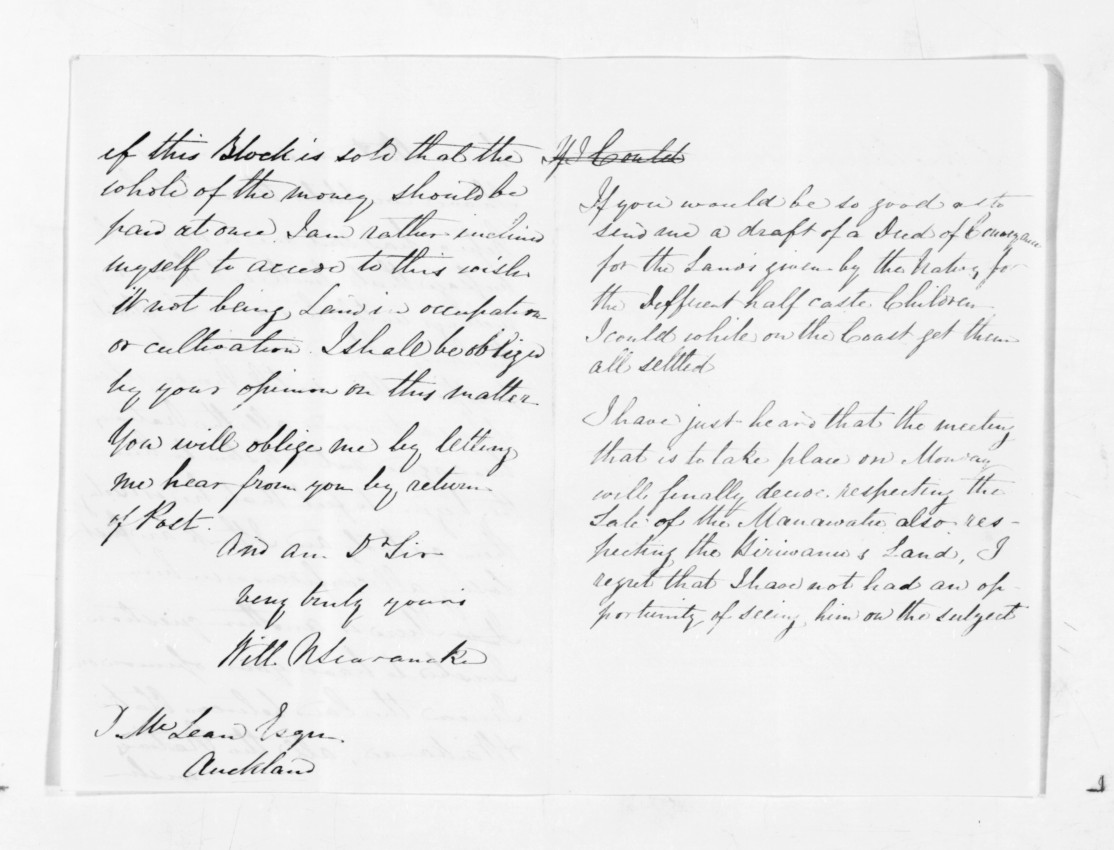 if this Block is sold that the
whole of the money should be
paid at once. I am rather inclined
myself to accede to this wish
it not being Land in occupation
or cultivation. I shall be obliged
by your opinion on this matter
You will oblige me by letting
me hear from you by return
of Post.
And am Dr Sir
very truly yours
Will
D. McLean Esqre.
Auckland
If I Could
If you would be so good as to
send me a draft of a Deed of Conveyance
for the Lands given by the Natives for
the Different half caste Children
I could while on the Coast get them
all settled
I have just heard that the meeting
that is to take place on Monday
will finally decide respecting the
Sale of the Manawatu also res-
pecting the Land, I
regret that I have not had an op-
portunity of seeing him on the subject